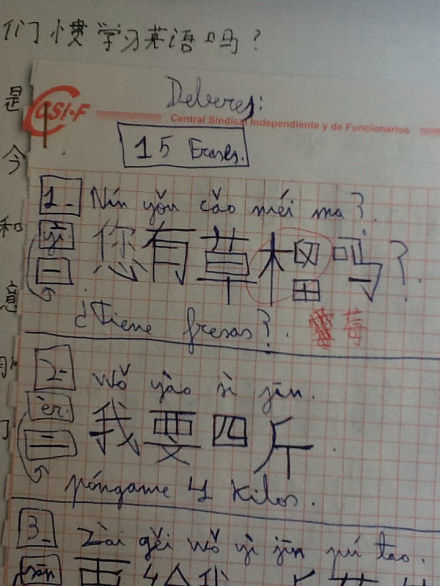 们惯学习英语吗?
是
今
和
意
CSI·F
Deberes:
Central Sindical Independiente y de Funcionarios
15 Frases.
1- Nín yǒu cǎo méi ma?
yī
一
您有草 吗?
¿Tiene fresas?. 莓
2- Wǒ yào sì jīn.
èr.
二
我要四斤
póngame 4 Kilos.
3- Zài gěi wǒ yì jīn pú tao.
sān